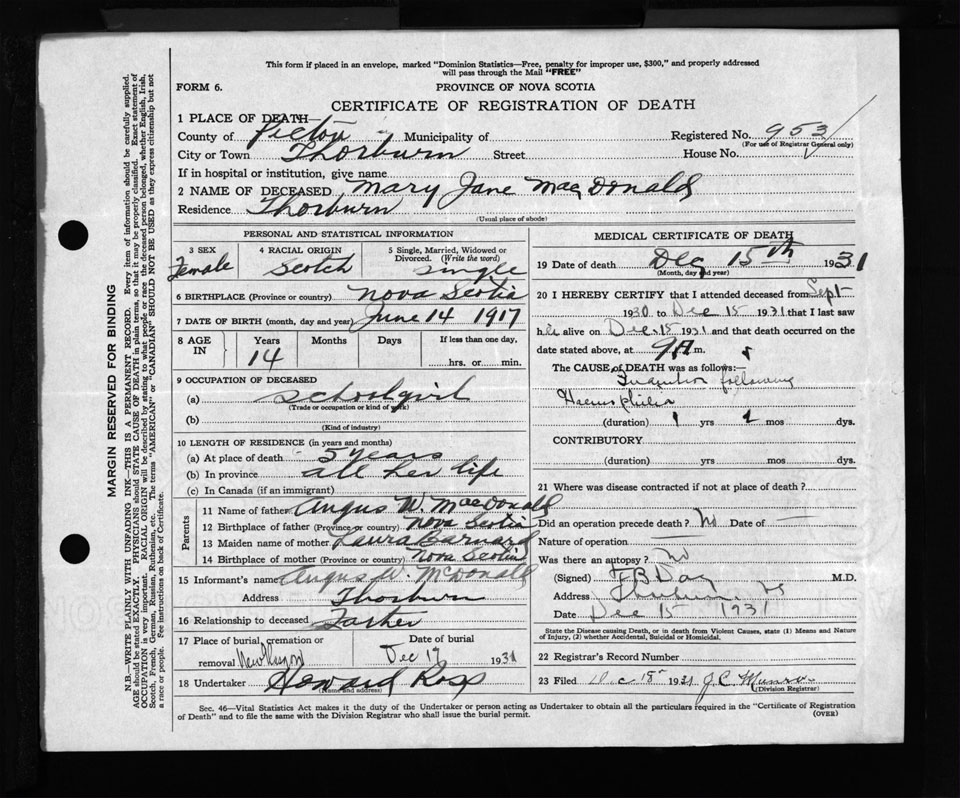 This form if placed in an envelope, marked "Dominion Statistics—Free, penalty for improper use, $300," and properly addressed
will pass through the Mail "FREE"
FORM 6.
PROVINCE OF NOVA SCOTIA
CERTIFICATE OF REGISTRATION OF DEATH
1 PLACE OF DEATH—
County of Pictou Municipality of Registered No. 953
(For use of Registrar General only)
City or Town Thorburn Street House No.
If in hospital or institution, give name
2 NAME OF DECEASED Mary Jane MacDonald
Residence Thorburn
(Usual place of abode)
PERSONAL AND STATISTICAL INFORMATION
3 SEX 4 RACIAL ORIGIN 5 Single, Married, Widowed or
Divorced. (Write the word)
Female Scotch Single
6 BIRTHPLACE (Province or country) Nova Scotia
7 DATE OF BIRTH (month, day and year) June 14 1917
8 AGE IN Years Months Days If less than one day,
14 hrs. or min.
9 OCCUPATION OF DECEASED
(a) Schoolgirl
(Trade or occupation or kind of work)
(b)
(Kind of industry)
10 LENGTH OF RESIDENCE (in years and months)
(a) At place of death 5 years
(b) In province all her life
(c) In Canada (if an immigrant)
Parents
11 Name of father Angus W. MacDonald
12 Birthplace of father (Province or country) Nova Scotia
13 Maiden name of mother Laura Barnard
14 Birthplace of mother (Province or country) Nova Scotia
15 Informant's name Angus W. McDonald
Address Thorburn
16 Relationship to deceased Father
17 Place of burial, cremation or Date of burial
removal Dec 17 1931
18 Undertaker Howard Ross
(Name and address)
MEDICAL CERTIFICATE OF DEATH
19 Date of death Dec 15th 1931
(Month, day and year)
20 I HEREBY CERTIFY that I attended deceased from Sept
1930 to Dec 15 1931 that I last saw
h er alive on Dec 15 1931 and that death occurred on
date stated above, at 9 A m.
The CAUSE of DEATH was as follows:—
following
Haemophilia
(duration) 1 yrs mos dys.
CONTRIBUTORY
(duration) yrs. mos. dys.
21 Where was disease contracted if not at place of death?
Did an operation precede death? No Date of —
Nature of operation —
Was there an autopsy? No
(Signed) M.D.
Address Thorburn NS
Date Dec 15 1931
State the Disease causing Death, or in death from Violent Causes, state (1) Means and Nature
of Injury, (2) whether Accidental, Suicidal or Homicidal.
22 Registrar's Record Number
23 Filed Dec 18 1931 J.C. Munro
(Division Registrar)
Sec. 46—Vital Statistics Act makes it the duty of the Undertaker or person acting as Undertaker to obtain all the particulars required in the "Certificate of Registration
of Death" and to file the same with the Division Registrar who shall issue the burial permit.
(OVER)
MARGIN RESERVED FOR BINDING
N.B.—WRITE PLAINLY WITH UNFADING INK—THIS IS A PERMANENT RECORD. Every item of information should be carefully supplied.
AGE should be stated EXACTLY. PHYSICIANS should STATE CAUSE OF DEATH in plain terms, so that it may be properly classified. Exact statement of
OCCUPATION is very important. RACIAL ORIGIN will be described by stating to what people or race the deceased person belonged, whether English, Irish,
Scotch, French, German, Russian, Ruthenian, etc. The terms "AMERICAN" or "CANADIAN" SHOULD NOT BE USED as they express citizenship but not
a race or people. Fee instructions on back of Certificate.